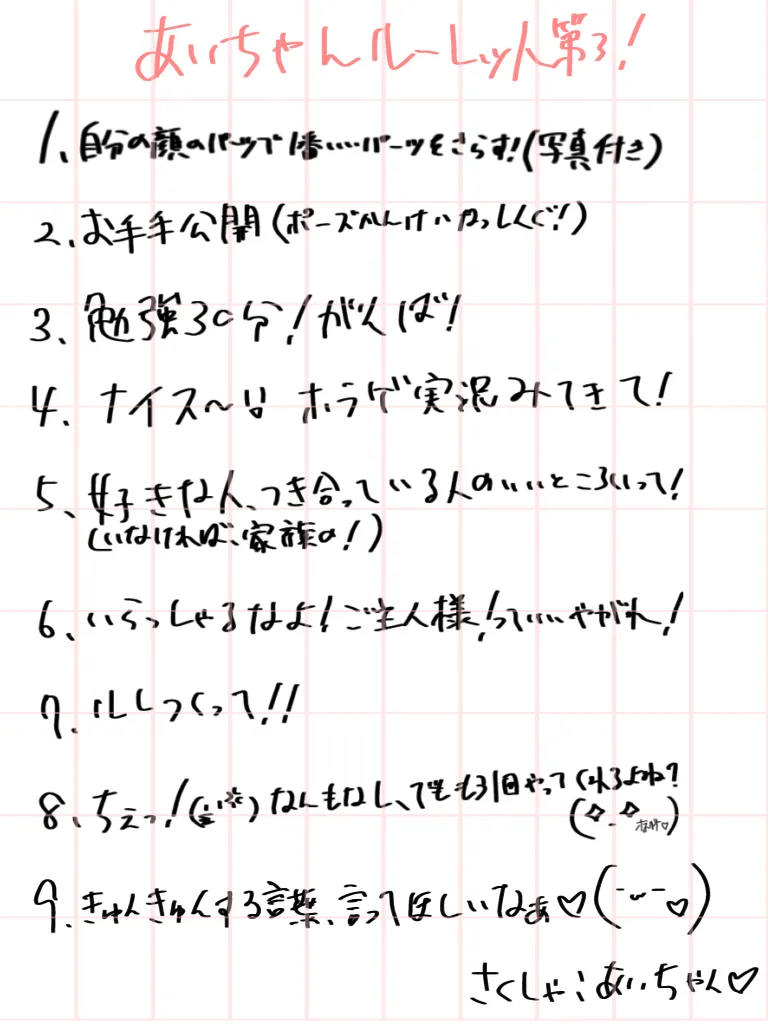 あいちゃんルーレット第3!
1、自分の顔のパーツで1番いいパーツをさらす!(写真付き)
2、お手手公開(ポーズかんけいなっしんぐ!)
3、勉強30分!がんば!
4、ナイス〜!! ホラゲ実況みてきて!
5、好きな人、つき合っている人のいいところいって!
(いなければ、家族の!)
6、いらっしゃるなよ!ご主人様!っていいやがれ!
7、ルレつくって!!
8、ちぇっ! なんもなし、でももう1回やってくれるよね?
9、きゅんきゅんする言葉、言ってほしいなぁ♡(˘⌣˘♡)
さくしゃ:あいちゃん♡